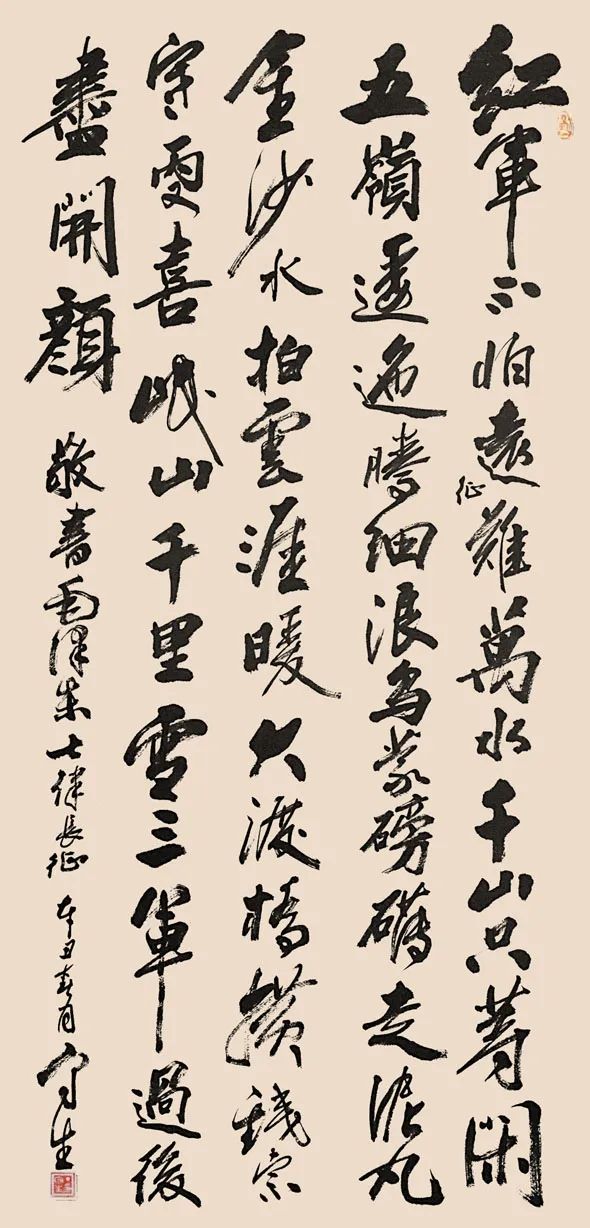 紅軍不怕遠征難萬水千山只等閑
五嶺逶迤騰細浪烏蒙磅礴走泥丸
金沙水拍雲涯暖大渡橋橫鐵索
寒更喜岷山千里雪三軍過後
盡開顏 敬書毛澤東七律長征 辛丑春月